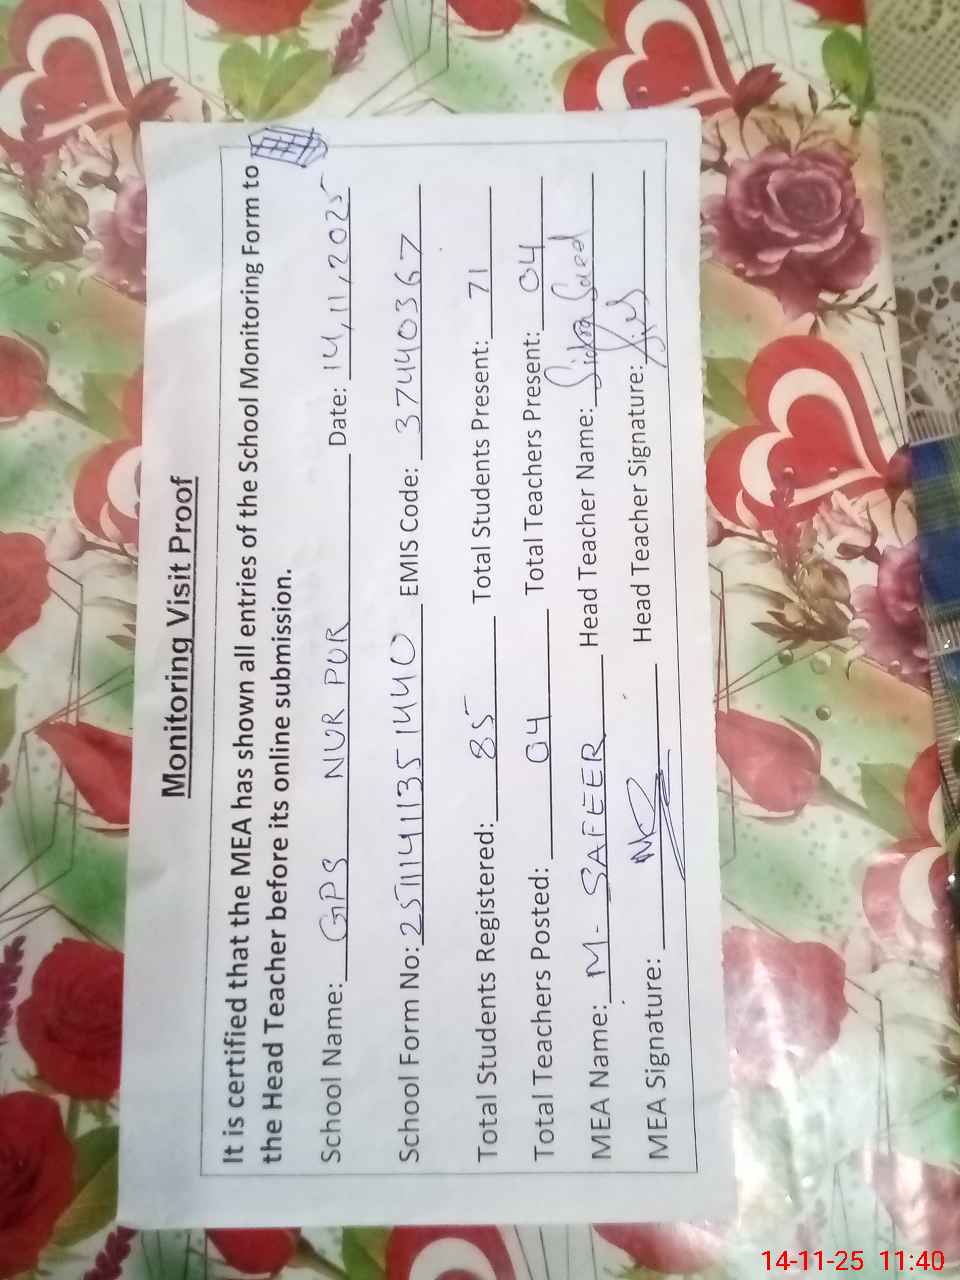 Monitoring Visit Proof
It is certified that the MEA has shown all entries of the School Monitoring Form to
the Head Teacher before its online submission.
School Name: GPS NUR PUR Date: 14,11,2025
School Form No: 25111411351440 EMIS Code: 37440367
Total Students Registered: 85 Total Students Present: 71
Total Teachers Posted: 04 Total Teachers Present: 04
MEA Name: M- SAFEER Head Teacher Name: Saeed
MEA Signature: Head Teacher Signature:
14-11-25 11:40